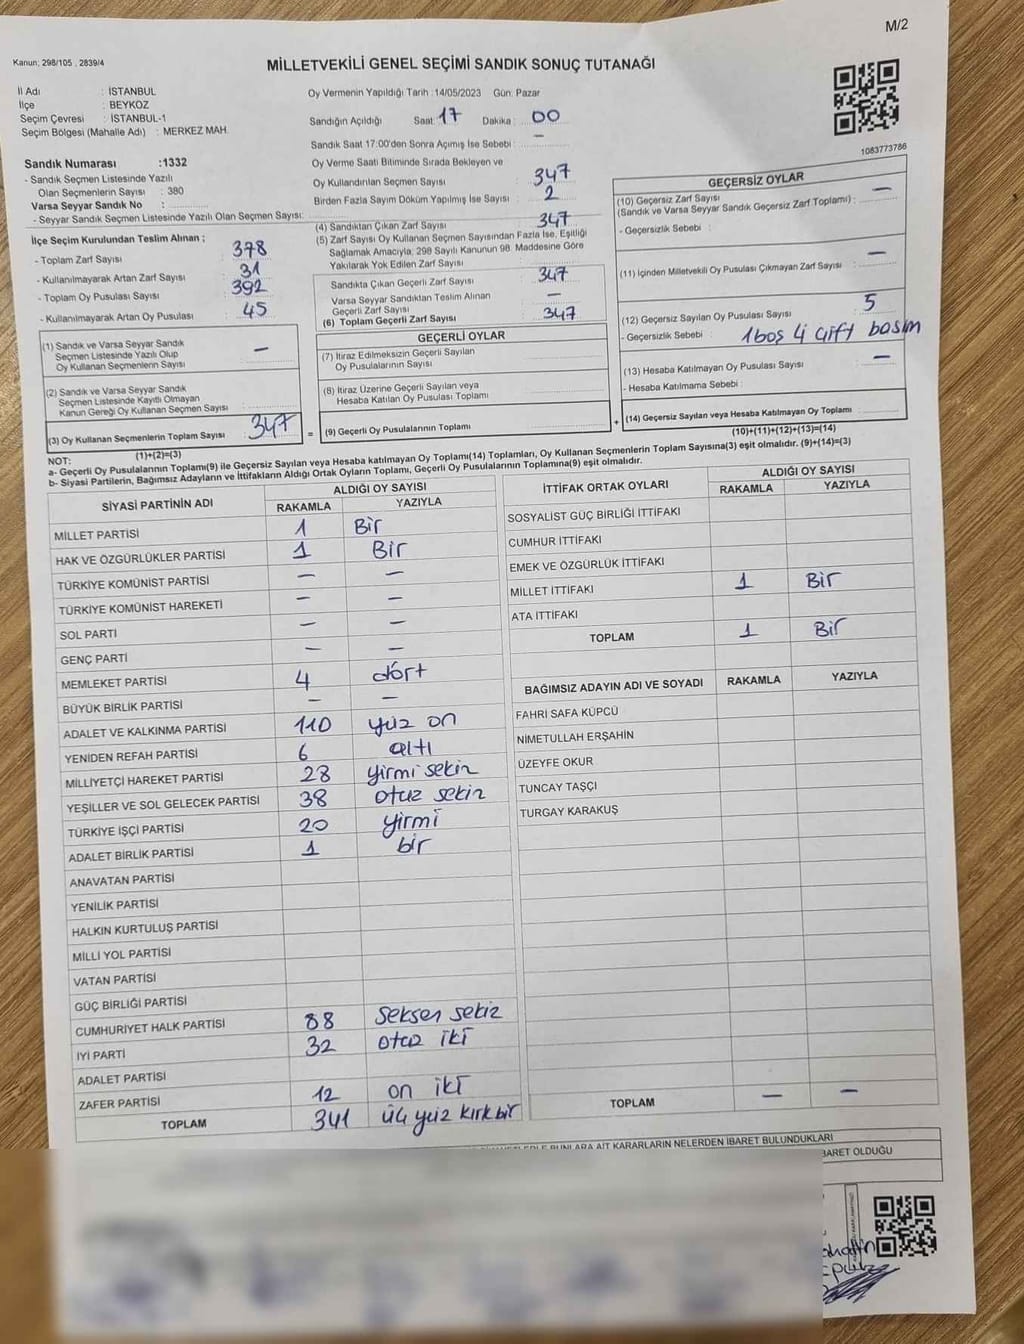 M/2
Kanun; 298/105 , 2839/4
MİLLETVEKİLİ GENEL SEÇİMİ SANDIK SONUÇ TUTANAĞI
İl Adı : İSTANBUL
İlçe : BEYKOZ
Seçim Çevresi : İSTANBUL-1
Seçim Bölgesi (Mahalle Adı) : MERKEZ MAH.
Sandık Numarası :1332
- Sandık Seçmen Listesinde Yazılı
Olan Seçmenlerin Sayısı : 380
Varsa Seyyar Sandık No :
- Seyyar Sandık Seçmen Listesinde Yazılı Olan Seçmen Sayısı:
Oy Vermenin Yapıldığı Tarih :14/05/2023 Gün: Pazar
Sandığın Açıldığı Saat: 17 Dakika : 00
Sandık Saat 17:00'den Sonra Açımış İse Sebebi : —
Oy Verme Saati Bitiminde Sırada Bekleyen ve
Oy Kullandırılan Seçmen Sayısı : 347
Birden Fazla Sayım Döküm Yapılmış İse Sayısı : 2
1083773786
İlçe Seçim Kurulundan Teslim Alınan ;
- Toplam Zarf Sayısı : 378
- Kullanılmayarak Artan Zarf Sayısı : 31
- Toplam Oy Pusulası Sayısı : 392
- Kullanılmayarak Artan Oy Pusulası : 45
(1) Sandık ve Varsa Seyyar Sandık
Seçmen Listesinde Yazılı Olup
Oy Kullanan Seçmenlerin Sayısı : —
(2) Sandık ve Varsa Seyyar Sandık
Seçmen Listesinde Kayıtlı Olmayan
Kanun Gereği Oy Kullanan Seçmen Sayısı :
(3) Oy Kullanan Seçmenlerin Toplam Sayısı 347
(1)+(2)=(3)
(4) Sandıktan Çıkan Zarf Sayısı : 347
(5) Zarf Sayısı Oy Kullanan Seçmen Sayısından Fazla İse, Eşitliği
Sağlamak Amacıyla, 298 Sayılı Kanunun 98. Maddesine Göre
Yakılarak Yok Edilen Zarf Sayısı :
Sandıkta Çıkan Geçerli Zarf Sayısı : 347
Varsa Seyyar Sandıktan Teslim Alınan
Geçerli Zarf Sayısı : —
(6) Toplam Geçerli Zarf Sayısı : 347
GEÇERLİ OYLAR
(7) İtiraz Edilmeksizin Geçerli Sayılan
Oy Pusulalarının Sayısı :
(8) İtiraz Üzerine Geçerli Sayılan veya
Hesaba Katılan Oy Pusulası Toplamı :
= (9) Geçerli Oy Pusulalarının Toplamı :
GEÇERSİZ OYLAR
(10) Geçersiz Zarf Sayısı —
(Sandık ve Varsa Seyyar Sandık Geçersiz Zarf Toplamı) :
- Geçersizlik Sebebi :
(11) İçinden Milletvekili Oy Pusulası Çıkmayan Zarf Sayısı : —
(12) Geçersiz Sayılan Oy Pusulası Sayısı : 5
- Geçersizlik Sebebi : 1boş 4 çift basım
(13) Hesaba Katılmayan Oy Pusulası Sayısı : —
- Hesaba Katılmama Sebebi :
+ (14) Geçersiz Sayılan veya Hesaba Katılmayan Oy Toplamı :
(10)+(11)+(12)+(13)=(14)
NOT:
a- Geçerli Oy Pusulalarının Toplamı(9) ile Geçersiz Sayılan veya Hesaba katılmayan Oy Toplamı(14) Toplamları, Oy Kullanan Seçmenlerin Toplam Sayısına(3) eşit olmalıdır. (9)+(14)=(3)
b- Siyasi Partilerin, Bağımsız Adayların ve İttifakların Aldığı Ortak Oyların Toplamı, Geçerli Oy Pusulalarının Toplamına(9) eşit olmalıdır.
SİYASİ PARTİNİN ADI ALDIĞI OY SAYISI
RAKAMLA YAZIYLA
MİLLET PARTİSİ 1 Bir
HAK VE ÖZGÜRLÜKLER PARTİSİ 1 Bir
TÜRKİYE KOMÜNİST PARTİSİ — —
TÜRKİYE KOMÜNİST HAREKETİ — —
SOL PARTİ — —
GENÇ PARTİ — —
MEMLEKET PARTİSİ 4 dört
BÜYÜK BİRLİK PARTİSİ — —
ADALET VE KALKINMA PARTİSİ 110 yüz on
YENİDEN REFAH PARTİSİ 6 altı
MİLLİYETÇİ HAREKET PARTİSİ 28 yirmi sekiz
YEŞİLLER VE SOL GELECEK PARTİSİ 38 otuz sekiz
TÜRKİYE İŞÇİ PARTİSİ 20 yirmi
ADALET BİRLİK PARTİSİ 1 bir
ANAVATAN PARTİSİ
YENİLİK PARTİSİ
HALKIN KURTULUŞ PARTİSİ
MİLLİ YOL PARTİSİ
VATAN PARTİSİ
GÜÇ BİRLİĞİ PARTİSİ
CUMHURİYET HALK PARTİSİ 88 Seksen sekiz
İYİ PARTİ 32 otuz iki
ADALET PARTİSİ
ZAFER PARTİSİ 12 on iki
TOPLAM 341 üç yüz kırk bir
İTTİFAK ORTAK OYLARI ALDIĞI OY SAYISI
RAKAMLA YAZIYLA
SOSYALİST GÜÇ BİRLİĞİ İTTİFAKI
CUMHUR İTTİFAKI
EMEK VE ÖZGÜRLÜK İTTİFAKI
MİLLET İTTİFAKI 1 Bir
ATA İTTİFAKI
TOPLAM 1 Bir
BAĞIMSIZ ADAYIN ADI VE SOYADI RAKAMLA YAZIYLA
FAHRİ SAFA KÜPCÜ
NİMETULLAH ERŞAHİN
ÜZEYFE OKUR
TUNCAY TAŞÇI
TURGAY KARAKUŞ
TOPLAM — —
BUNLARA AİT KARARLARIN NELERDEN İBARET BULUNDUKLARI
BARET OLDUĞU